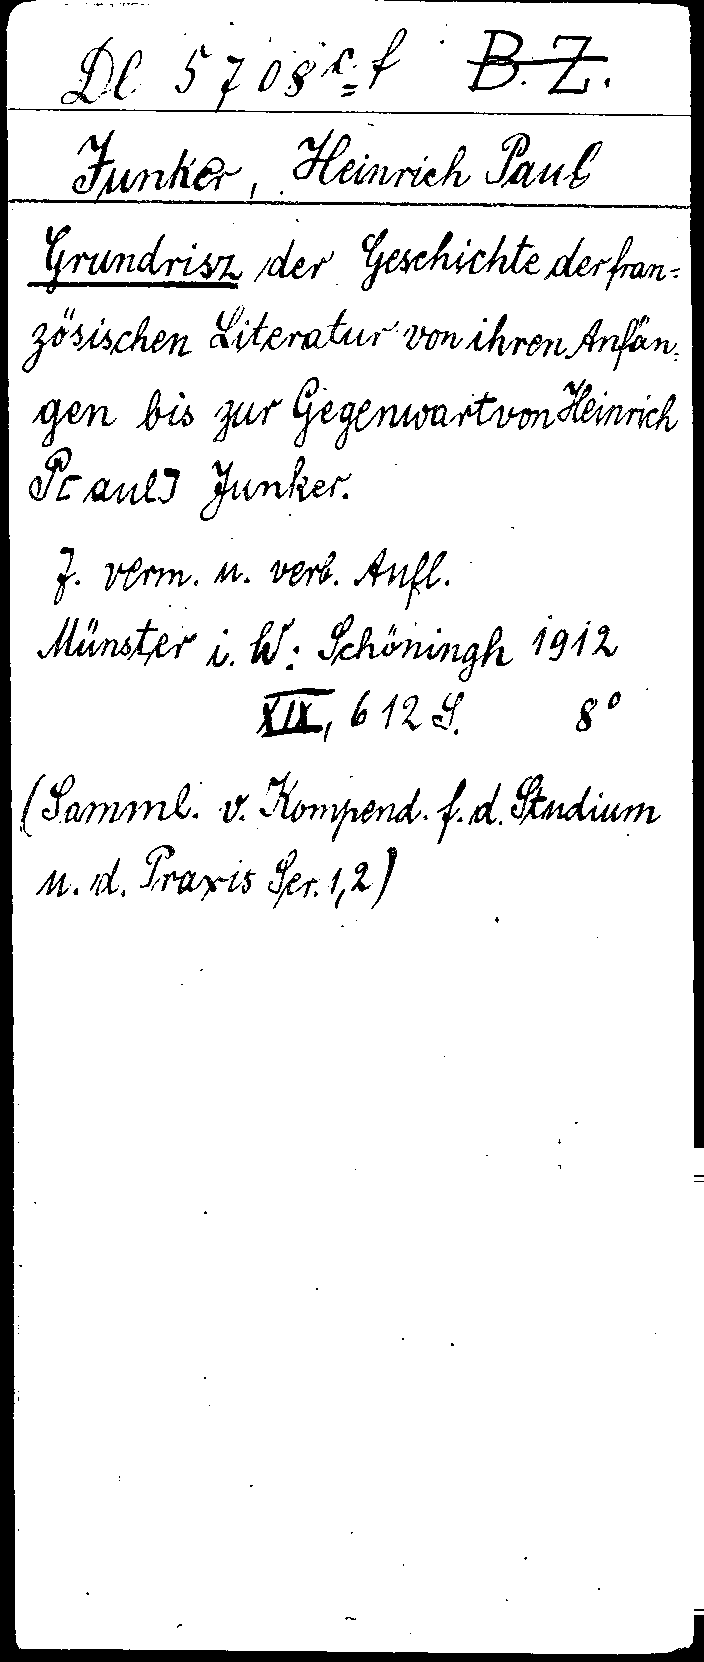 Dl 5708 c=f B.Z.
Junker, Heinrich Paul
Grundrisz der Geschichte der fran=
zösischen Literatur von ihren Anfän=
gen bis zur Gegenwart von Heinrich
P[aul] Junker.
7. verm. u. verb. Aufl.
Münster i. W.: Schöningh 1912
XIX, 612 S. 8°
(Samml. v. Kompend. f. d. Studium
u. d. Praxis Ser. 1,2)